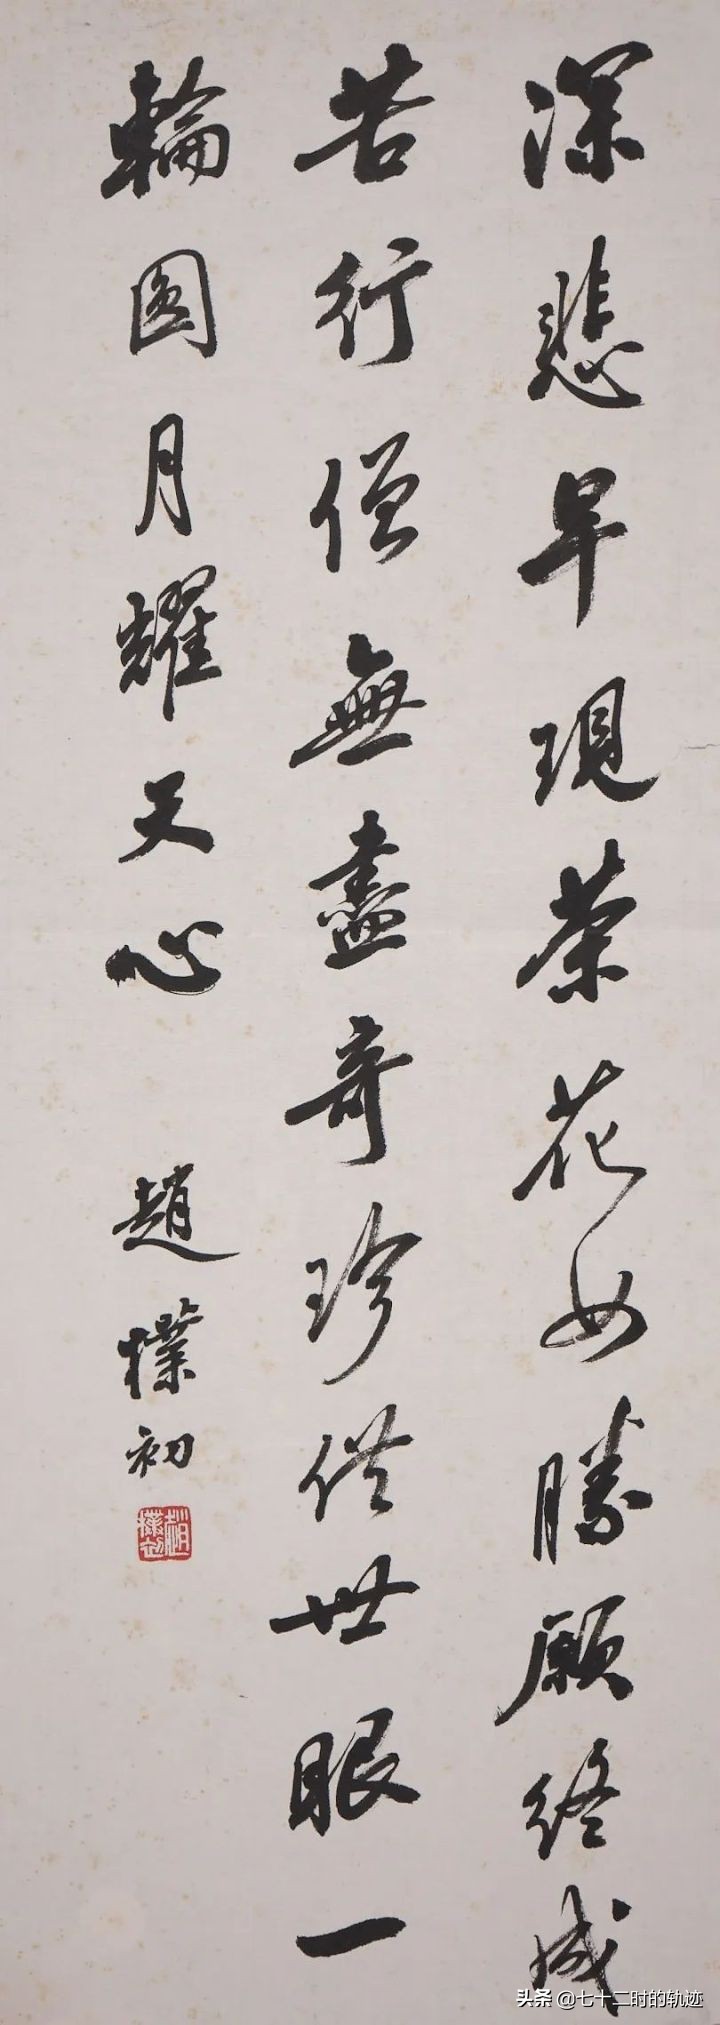 深悲早現茶花女勝願終成
苦行僧無盡奇珍供世眼一
輪圓月耀天心 趙樸初
趙樸初
头条 @七十二时的轨迹